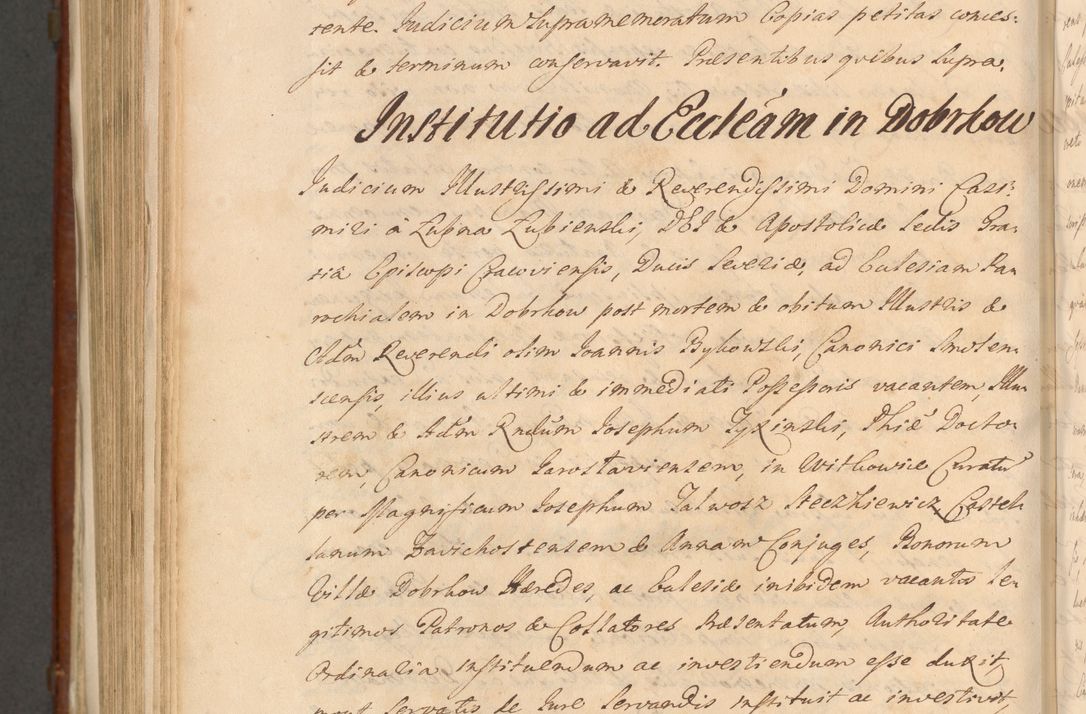 rente. Judicium Supramemoratum Copias petitas conces:
sit & terminum conservavit. Præsentibus quibus supra.
Institutio ad Eccleám in Dobrkow
Judicium Illustrissimi & Reverendissimi Domini Casi:
miri à Łubna Łubienski, DEI & Apostolicæ Sedis Gra-
tiâ Episcopi Cracoviensis, Ducis Severiæ, ad Ecclesiam Pa-
rochialem in Dobrkow post mortem & obitum Illustris &
Adm Reverendi olim Joannis Bykowski, Canonici Smolen-
scensis, illius ultimi & immediati Possessoris vacantem, Illu-
strem & Adm Rndum Josephum Tyzinski, Phiæ Docto-
rem, Canonicum Jaroslaviensem, in Witkowice Curatu
per Magnificum Josephum Talwosz Steczkiewicz Castel-
lanum Zavichostensem & Annam Conjuges, Bonorum
Villæ Dobrkow Hæredes, ac Ecclesiæ inibidem vacantis le-
gitimos Patronos & Collatores Præsentatum, Authoritate
Ordinaria instituendum ac investiendum esse duxit,
servatis de Jure servandis instituit ac investivit,